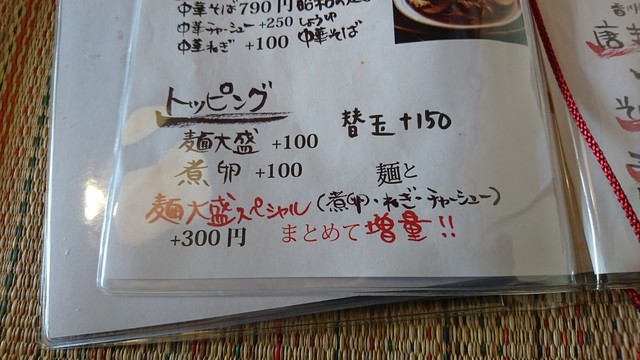 中華そば 790円
中華チャーシュー +250 しょうゆ
中華ねぎ +100 中華そば
トッピング
麺大盛 +100
替玉 +150
煮卵 +100
麺と
麺大盛スペシャル(煮卵・ねぎ・チャーシュー)
+300円 まとめて増量!!